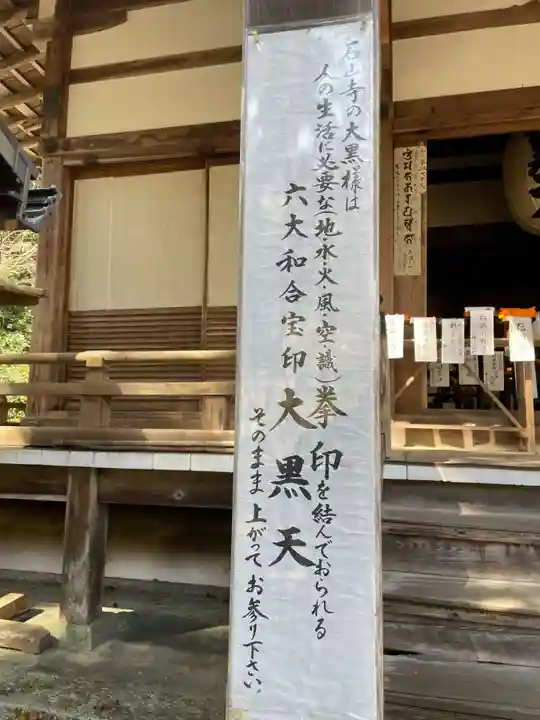 石山寺の大黒様は
人の生活に必要な(地・水・火・風・空・識)拳印を結んでおられる
六大和合宝印大黒天
そのまま上がってお参り下さい。